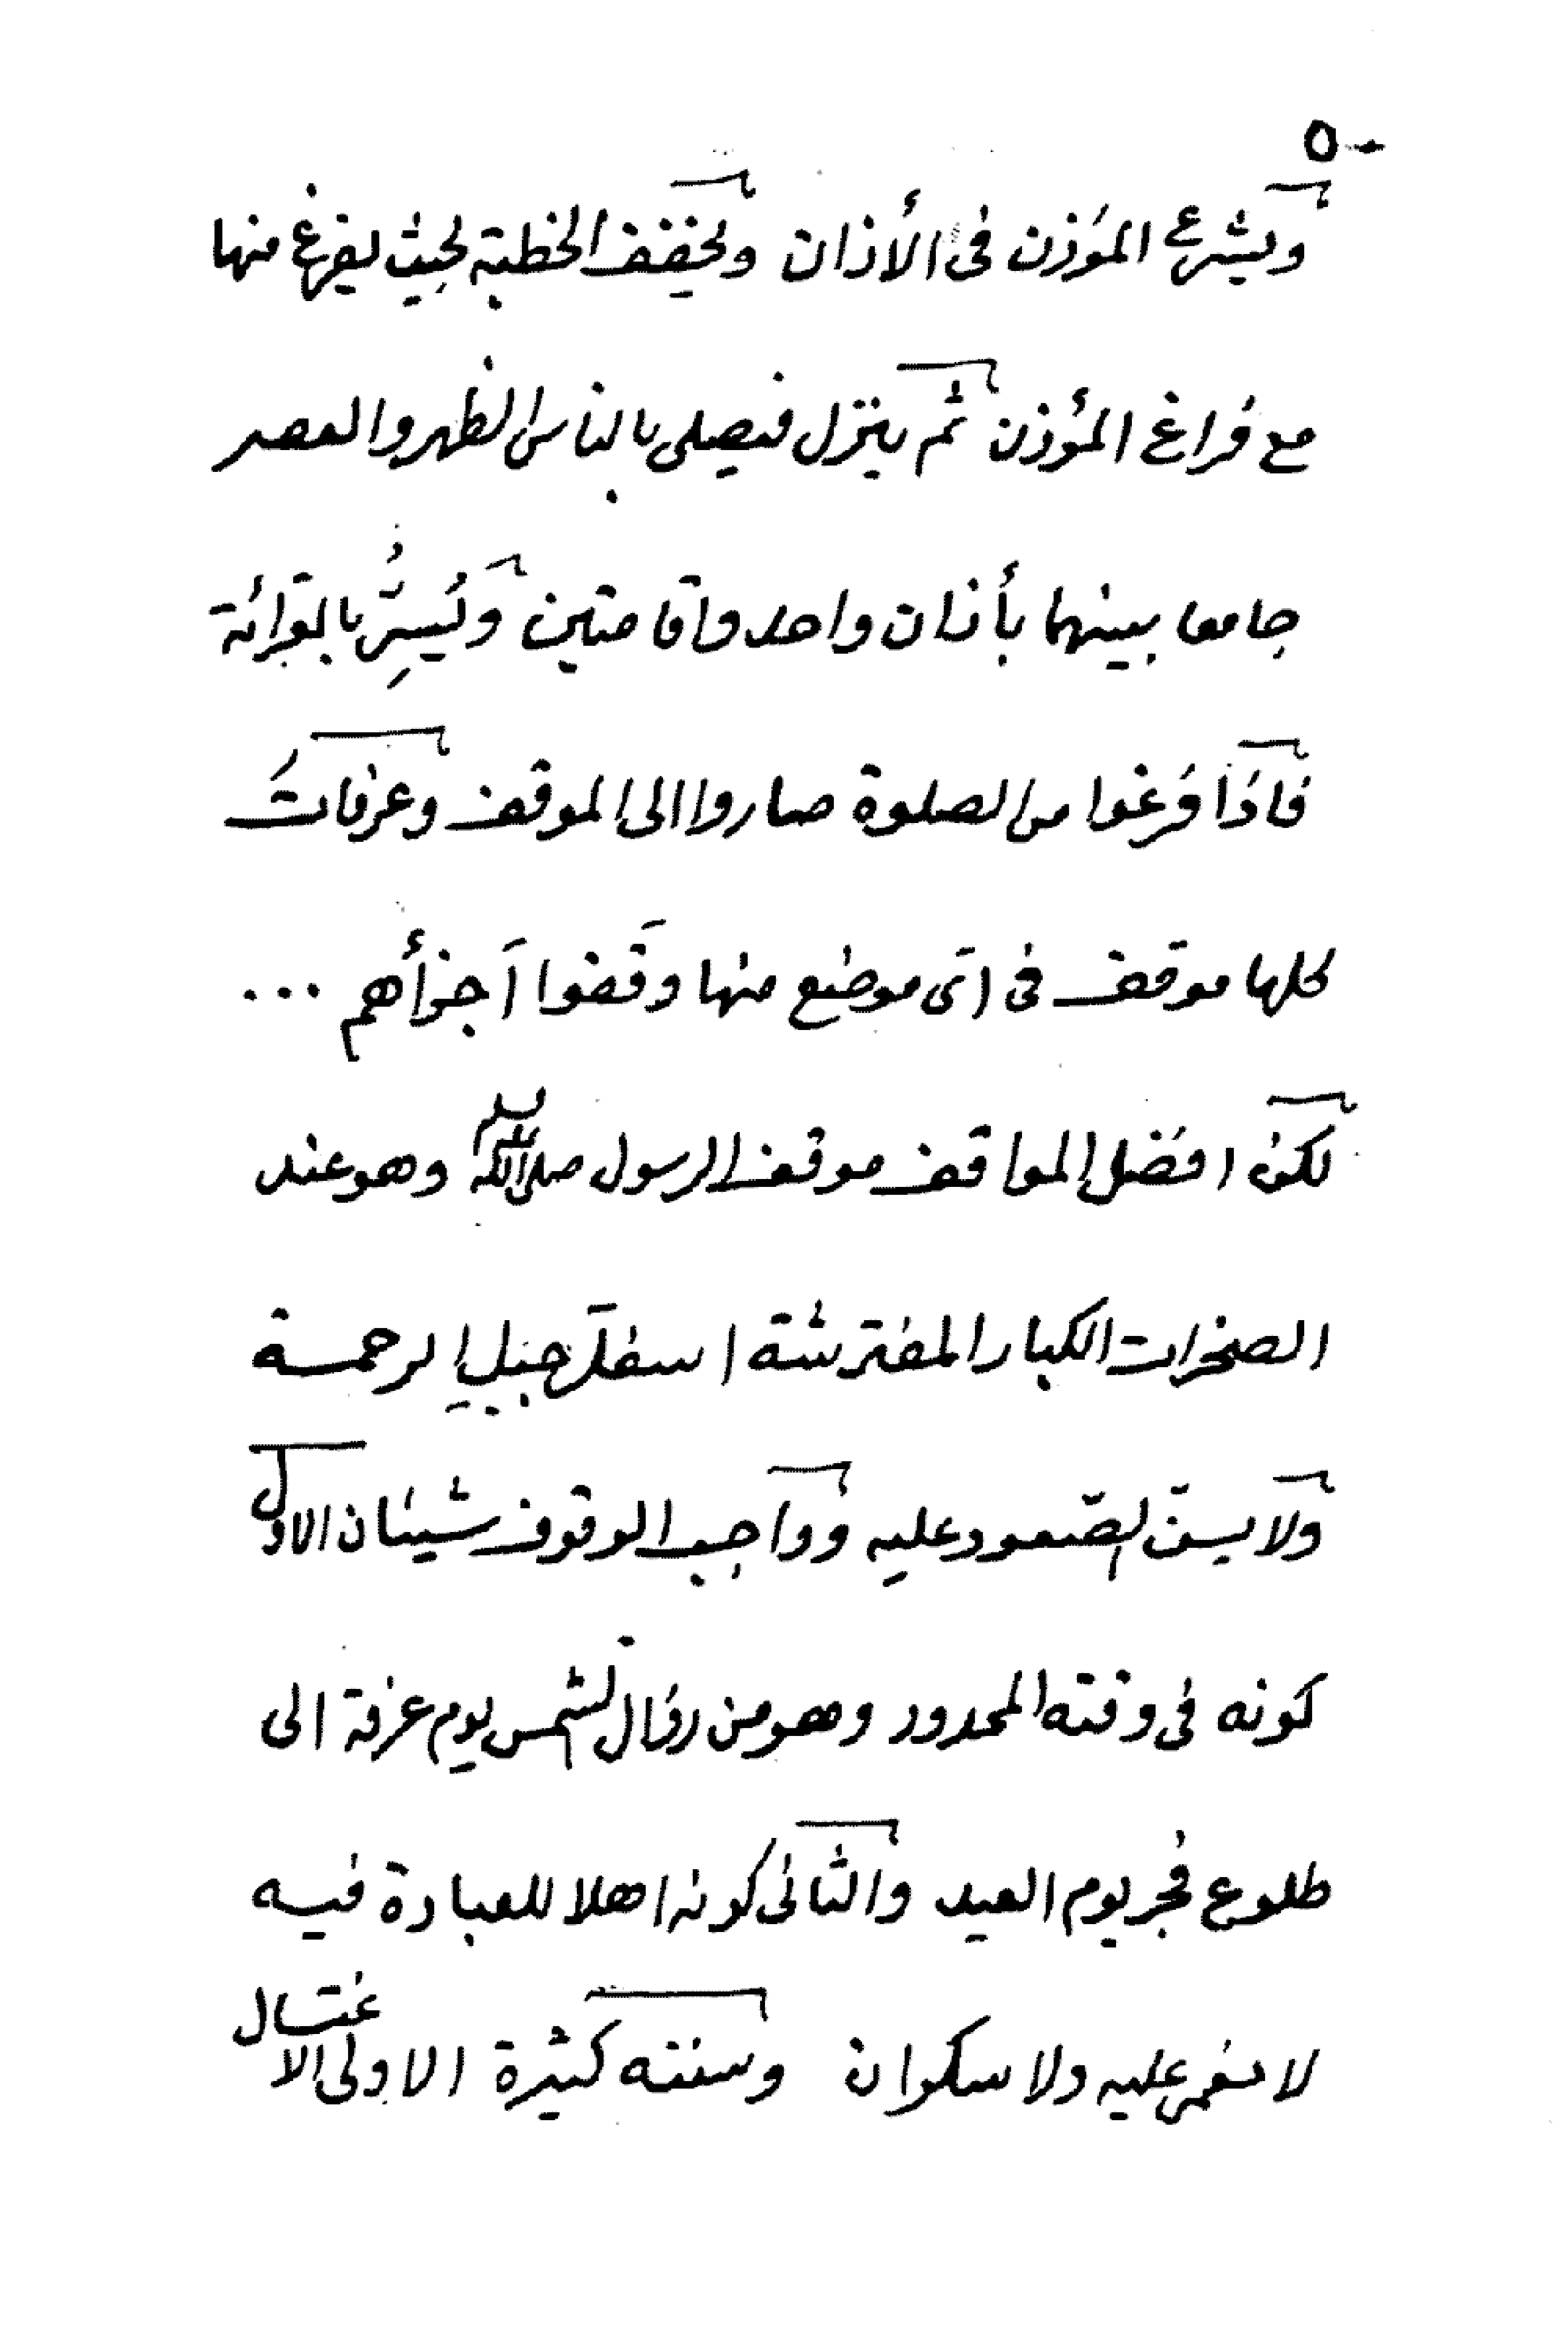 ٥٠
ويشرع المؤذن فى الأذان ويخفف الخطبة بحيث يفرغ منها
مع فراغ المؤذن ثم ينزل فيصلى بالناس الظهر والعصر
جامعا بينهما بأذان واحد واقامتين ويُسِرُّ بالقرائة
فاذا فرغوا من الصلوة صاروا الى الموقف وعرفات
كلها موقف فى اى موضع منها وقفوا اجزأهم ...
لكن افضل المواقف موقف الرسول صلى الله عليه وسلم وهو عند
الصخرات الكبار المفترشة اسفل جبل الرحمة
ولا يسن الصعود عليه وواجب الوقوف شيئان الاول
كونه فى وقته المحدود وهو من زوال الشمس يوم عرفة الى
طلوع فجر يوم العيد والثانى كونه اهلا للعبادة فيه
لا مغمى عليه ولا سكران وسننه كثيرة الاولى الاغتسال